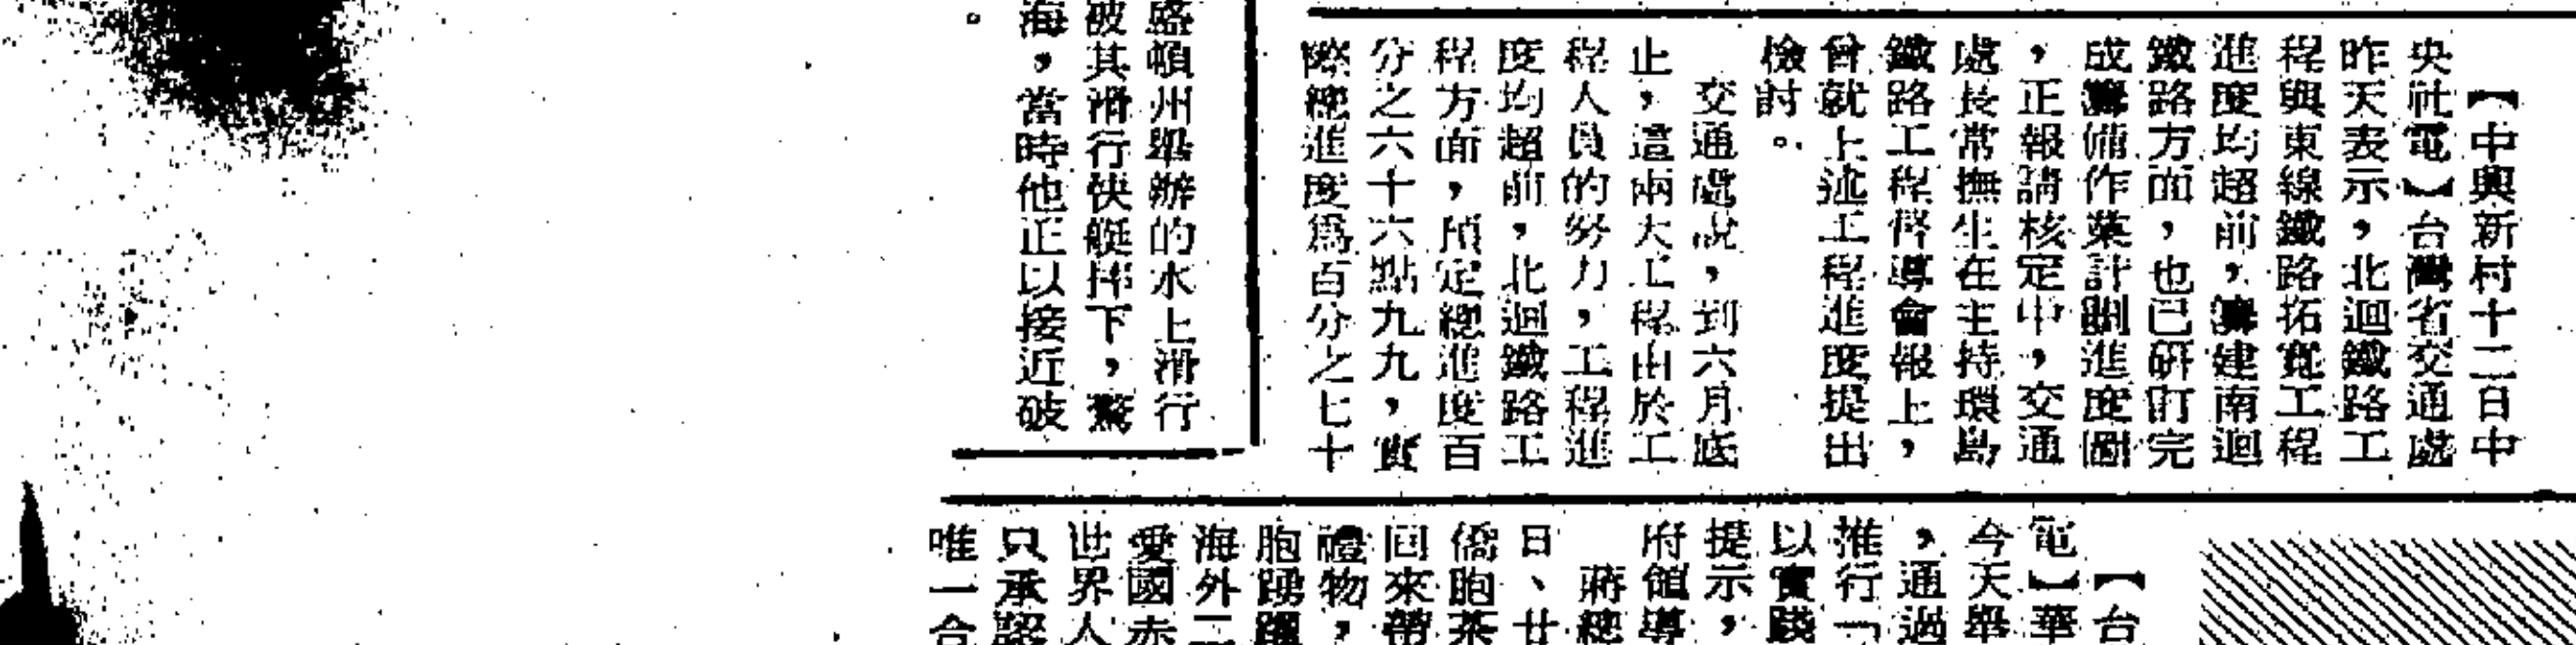 【中興新村十二日中
央社電】台灣省交通處
昨天表示，北迴鐵路工
程與東線鐵路拓寬工程
進度均超前，籌建南迴
鐵路方面，也已研訂完
成籌備作業計劃進度圖
，正報請核定中，交通
處長常撫生在主持環島
鐵路工程督導會報上，
曾就上述工程進度提出
檢討。
交通處說，到六月底
止，這兩大工程由於工
程人員的努力，工程進
度均超前，北迴鐵路工
程方面，預定總進度百
分之六十六點九九，實
際總進度為百分之七十
盛頓州舉辦的水上滑行
被其滑行快艇摔下，驚
海，當時他正以接近破
。
【台
電】華
今天舉
，通過
推行「
以實踐
提示，
府領導
蔣總
日、廿
僑胞茶
回來帶
禮物，
胞踴躍
海外二
愛國赤
世界人
只承認
唯一合